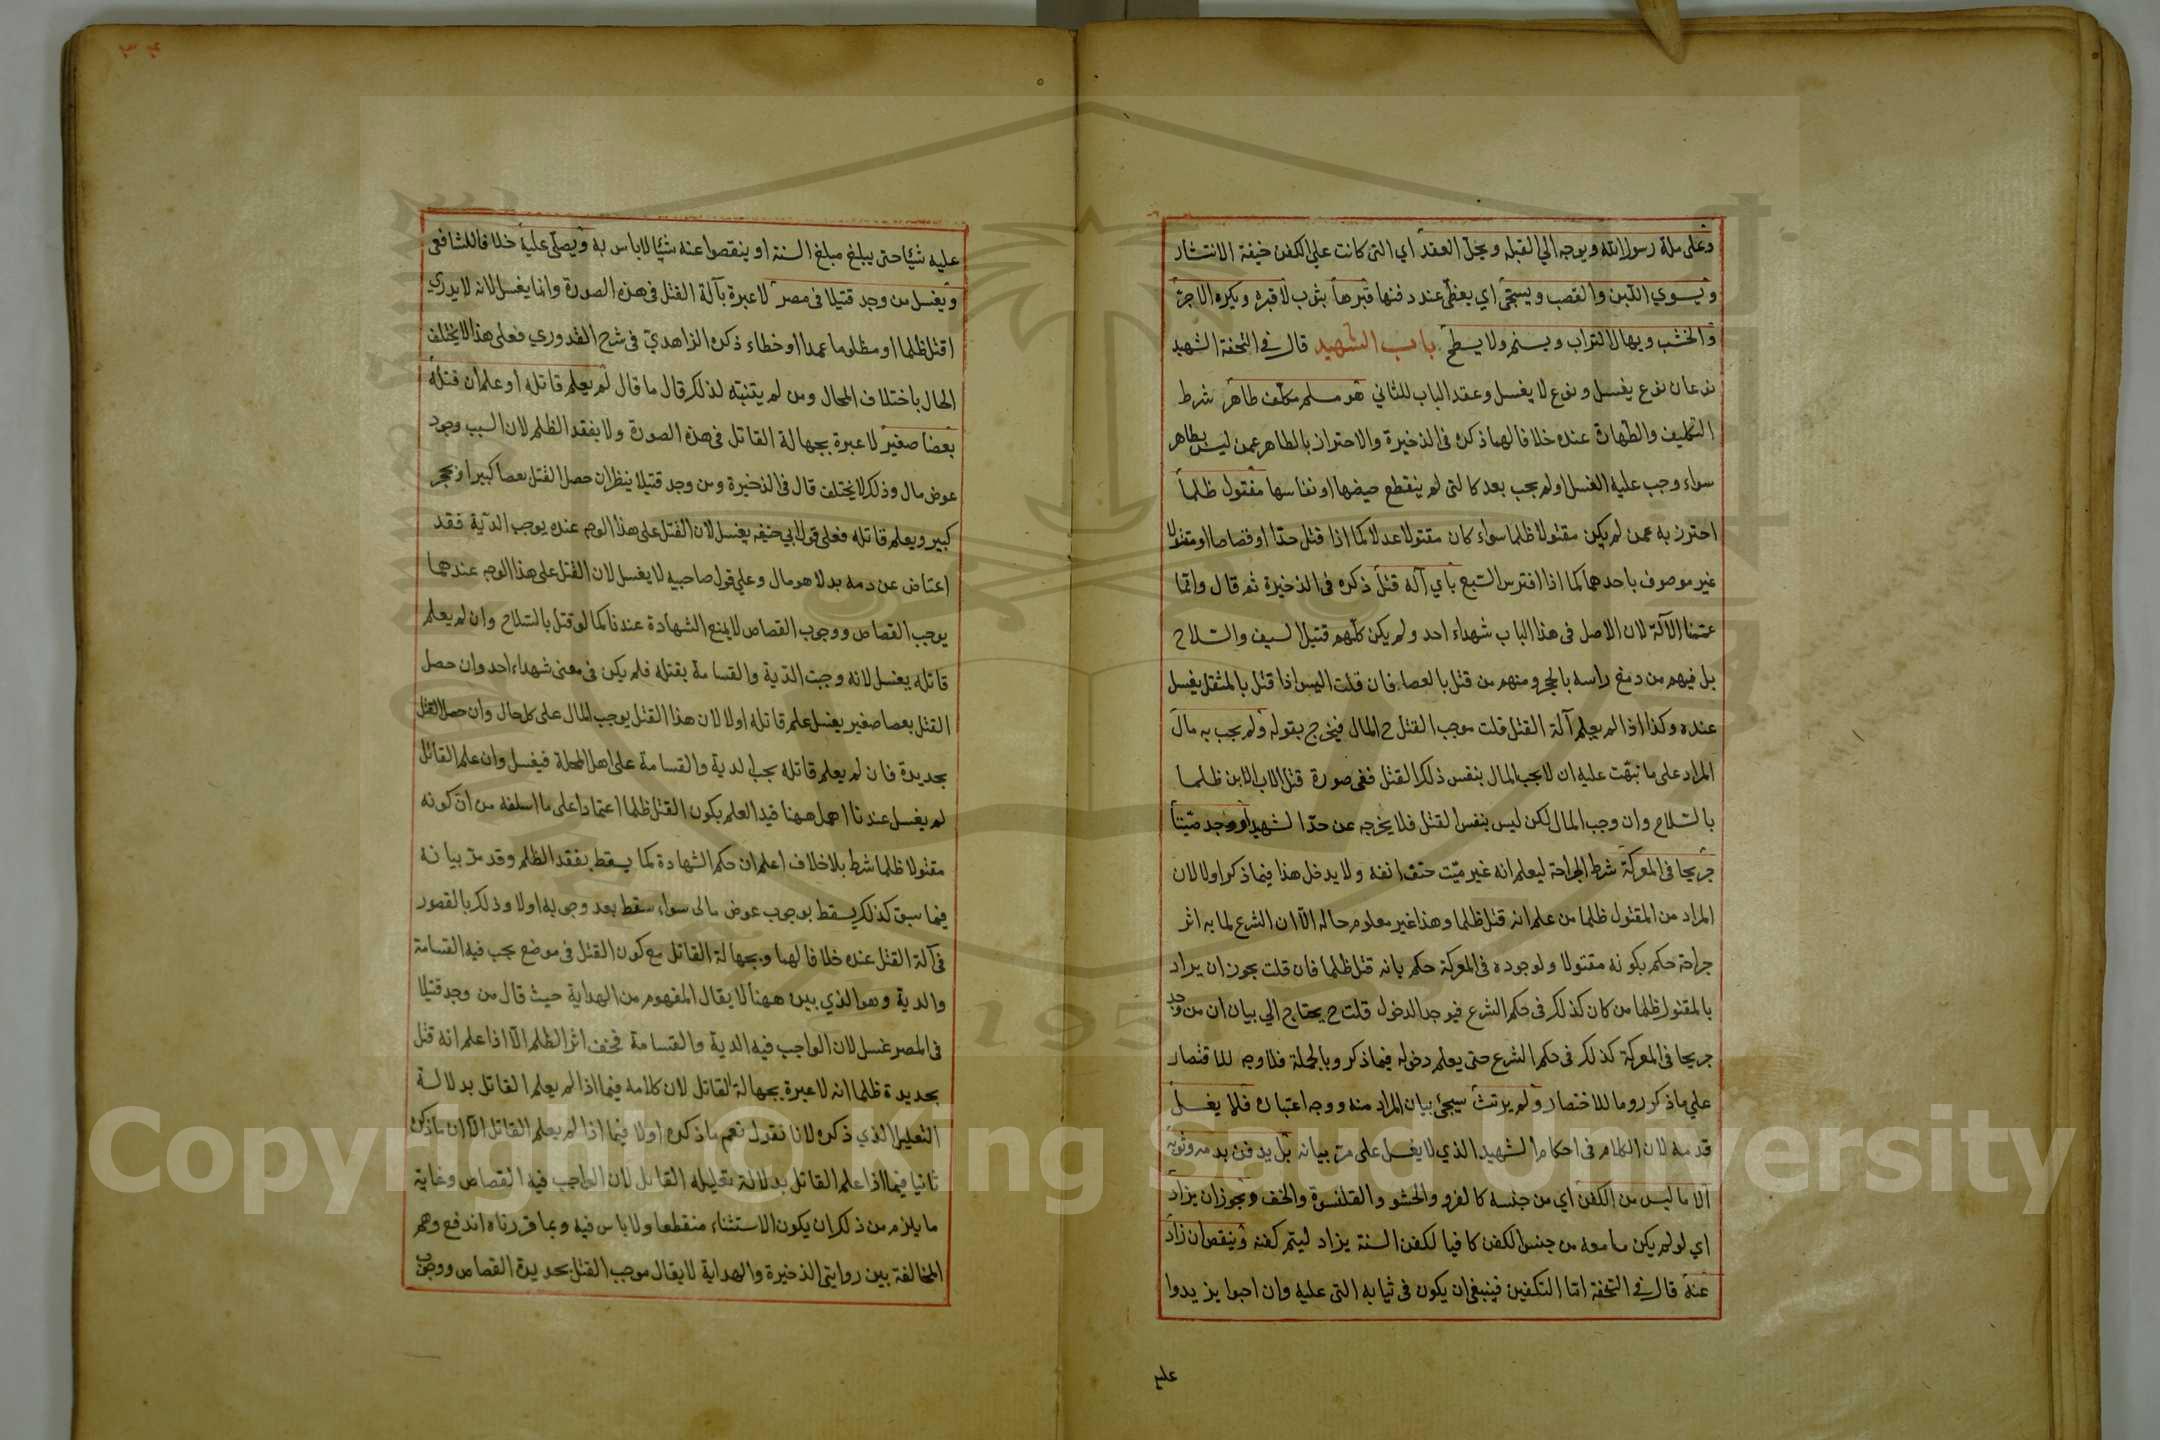 وعلى ملة رسول الله ويوجه الي القبلة ويحل العقد اي التى كانت علي الكفن خيفة الانتشار
ويسوي اللبن والقصب ويسجى اي يغطى عند دفنها قبرها بثوب لا قبره ويكره الاجر
والخشب ويهال التراب ويسنم ولا يسطح باب الشهيد قال في التحفة الشهيد
نوعان نوع يغسل ونوع لا يغسل وعقد الباب للثاني هو مسلم مكلف طاهر شرط
التكليف والطهارة عنده خلافا لهما ذكره فى الذخيرة والاحتراز بالطاهر عمن ليس بطاهر
سواء وجب عليه الغسل اولم يجب بعد كالتى لم ينقطع حيضها او نفاسها مقتول ظلما
احترز به عمن لم يكن مقتولا ظلما سواء كان مقتولا عدلا كما اذا قتل حدا او قصاصا او مقتولا
غير موصوف باحدهما كما اذا افترس السبع باي آلة قتل ذكره فى الذخيرة ثم قال وانما
عممنا الآلة لان الاصل فى هذا الباب شهداء احد ولم يكن كلهم قتيل السيف والسلاح
بل فيهم من دمغ راسه بالحجر ومنهم من قتل بالعصا فان قلت اليس اذا قتل بالمثقل يغسل
عنده وكذا اذا لم يعلم آلة القتل قلت موجب القتل ح المال فيخرج بقوله ولم يجب به مال
المراد على ما نبهت عليه ان لا يجب المال بنفس ذلك القتل ففى صورة قتل الاب الابن ظلما
بالسلاح وان وجب المال لكن ليس بنفس القتل فلا يخرجه عن حد الشهيد او وجد ميتا
جريحا فى المعركة شرط الجراحة ليعلم انه غير ميت حتف انفه ولا يدخل هذا فيما ذكر اولا لان
المراد من المقتول ظلما من علم انه قتل ظلما وهذا غير معلوم حاله الا ان الشرع لما به اثر
جراحة حكم بكونه مقتولا ولوجوده فى المعركة حكم بانه قتل ظلما فان قلت يجوز ان يراد
بالمقتول ظلما من كان كذلك فى حكم الشرع فيوجد الدخول قلت ح يحتاج الي بيان ان من وجد
جريحا فى المعركة كذلك فى حكم الشرع حتى يعلم دخوله فيما ذكر وبالجملة فلا وجه للاقتصار
علي ما ذكر روما للاختصار ولم يرتث سيجئ بيان المراد منه ووجه اعتباره فلا يغسل
قدمه لان الكلام فى احكام الشهيد الذي لا يغسل على مر بيانه بل يدفن بدمه وثوبه
الا ما ليس من الكفن اي من جنسه كالفرو والحشو والقلنسوة والخف ويجوز ان يزاد
اي لو لم يكن ما معه من جنس الكفن كافيا لكفن السنة يزاد ليتم كفنه وينقص ان زاد
عنه قال في التحفة اما التكفين فينبغى ان يكون فى ثيابه التى عليه وان احبوا يزيدوا
عليه
عليه شيئا حتى يبلغ مبلغ السنة او ينقصوا عنه شيئا لا باس به ويصلى عليه خلافا للشافعى
ويغسل من وجد قتيلا فى مصر لا عبرة بآلة القتل فى هذه الصورة وانما يغسل لانه لا يدري
اقتل ظالما او مظلوما عمدا او خطاء ذكره الزاهدي فى شرح القدوري فعلى هذا لا يختلف
الحال باختلاف المحال ومن لم يتنبه لذلك قال ما قال لم يعلم قاتله او علم ان قتله
بعصا صغير لا عبرة بجهالة القاتل فى هذه الصورة ولا بفقد الظلم لان السبب وجود
عوض مال وذلك لا يختلف قال فى الذخيرة ومن وجد قتيلا ينظر ان حصل القتل بعصا كبير او بحجر
كبير ويعلم قاتله فعلى قول ابي حنيفه يغسل لان القتل على هذا الوجه عنده يوجب الدية فقد
اعتاض عن دمه بدلا هو مال وعلي قول صاحبيه لا يغسل لان القتل على هذا الوجه عندهما
يوجب القصاص ووجوب القصاص لا يمنع الشهادة عندنا كما لو قتل بالسلاح وان لم يعلم
قاتله يغسل لانه وجبت الدية والقسامة بقتله فلم يكن فى معنى شهداء احد وان حصل
القتل بعصا صغير يغسل علم قاتله اولا لان هذا القتل يوجب المال على كل حال وان حصل القتل
بحديدة فان لم يعلم قاتله يجب الدية والقسامة على اهل المحلة فيغسل وان علم القاتل
لم يغسل عندنا اهمل ههنا قيد العلم بكون القتل ظلما اعتمادا على ما اسلفه من ان كونه
مقتولا ظلما شرط بلا خلاف اعلم ان حكم الشهادة كما يسقط بفقد الظلم وقد مر بيانه
فيما سبق كذلك يسقط بوجوب عوض مالى سواء سقط بعد وجوبه اولا وذلك بالقصور
فى آلة القتل عنده خلافا لهما وبجهالة القاتل مع كون القتل فى موضع يجب فيه القسامة
والدية وهو الذي بين ههنا لا يقال المفهوم من الهداية حيث قال من وجد قتيلا
فى المصر غسل لان الواجب فيه الدية والقسامة فخف اثر الظلم الا اذا علم انه قتل
بحديدة ظلما انه لا عبرة بجهالة القاتل لان كلامه فيما اذا لم يعلم القاتل بدلالة
التعليل الذي ذكره لانا نقول نعم ما ذكره اولا فيما اذا لم يعلم القاتل الا ان ما ذكره
ثانيا فيما اذا علم القاتل بدلالة تعليله القابل لان الواجب فيه القصاص وغاية
ما يلزم من ذلك ان يكون الاستثناء منقطعا ولا باس فيه وبما قررناه اندفع وهم
المخالفة بين روايتى الذخيرة والهداية لا يقال موجب القتل بحديدة القصاص ووجوب
Copyright © King Saud University